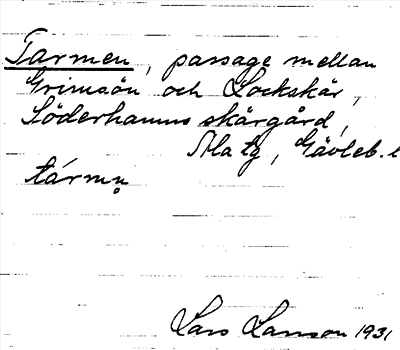 Tarmen, passage mellan
Grimsön och Lockskär,
Söderhamns skärgård,
Ala tg, Gävleb. l
tármn̥
Lars Larsson 1931